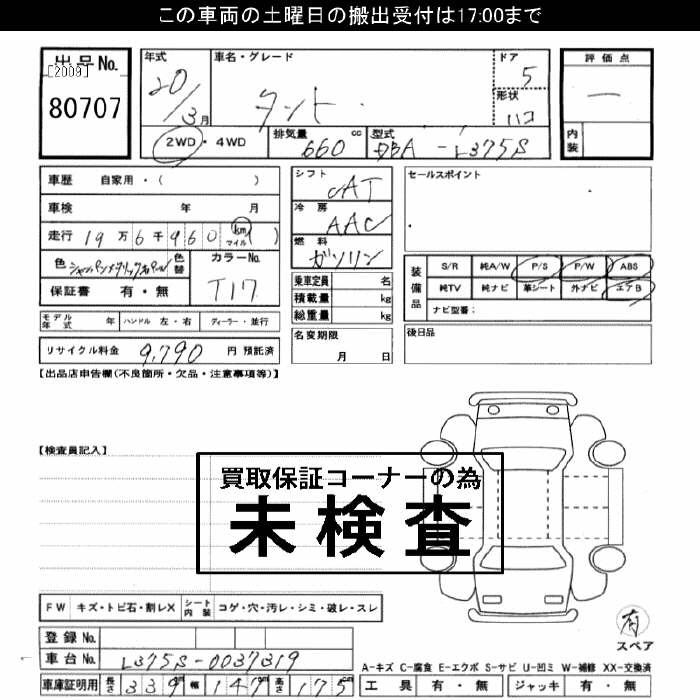 この車両の土曜日の搬出受付は17:00まで
出品No.
[2009]
80707
年式
20/3月
車名・グレード
タント
ドア
5
形状
ハコ
評価点
—
内装
2WD・4WD
排気量
660 cc
型式
DBA-L375S
車歴 自家用・( )
車検 年 月
走行 19万6千960 km マイル ( )
色 シャンパンメタリックオパール 色替
カラーNo.
T17
保証書 有・無
シフト
CAT
冷房
AAC
燃料
ガソリン
乗車定員 名
積載量 kg
総重量 kg
セールスポイント
装備品
S/R 純A/W P/S P/W ABS
純TV 純ナビ 革シート 外ナビ エアB
ナビ型番:
モデル年式 年 ハンドル 左・右 ディーラー・並行
リサイクル料金 9,790 円 預託済
名変期限
月 日
後日品
【出品店申告欄(不良箇所・欠品・注意事項等)】
【検査員記入】
買取保証コーナーの為
未検査
FW キズ・トビ石・割レX シート内装 コゲ・穴・汚レ・シミ・破レ・スレ
登録No.
車台No. L375S-0037319
車庫証明用 長さ 339 cm 幅 147 cm 高さ 175 cm
有
スペア
A-キズ C-腐食 E-エクボ S-サビ U-凹ミ W-補修 XX-交換済
工具 有・無 ジャッキ 有・無